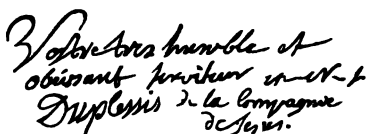 Vostre tres humble et
obeissant serviteur en N. S.
Duplessis de la Compagnie
de Jesus.